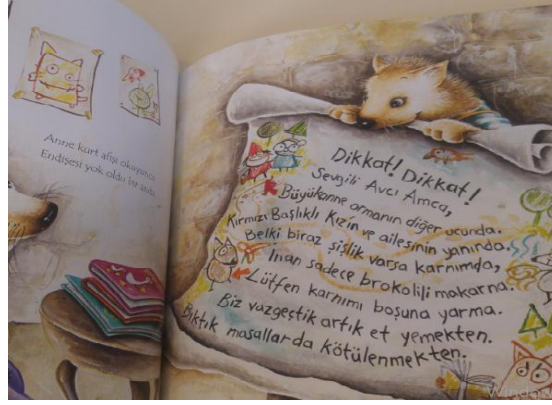 Anne kurt afişi okuyunca
Endişesi yok oldu bir anda.
Dikkat! Dikkat!
Sevgili Avcı Amca,
Büyükanne ormanın diğer ucunda.
Kırmızı Başlıklı Kız'ın ve ailesinin yanında.
Belki biraz şişlik varsa karnımda,
İnan sadece brokolili makarna.
Lütfen karnımı boşuna yarma.
Biz vazgeçtik artık et yemekten.
Bıktık masallarda kötülenmekten.
Windows